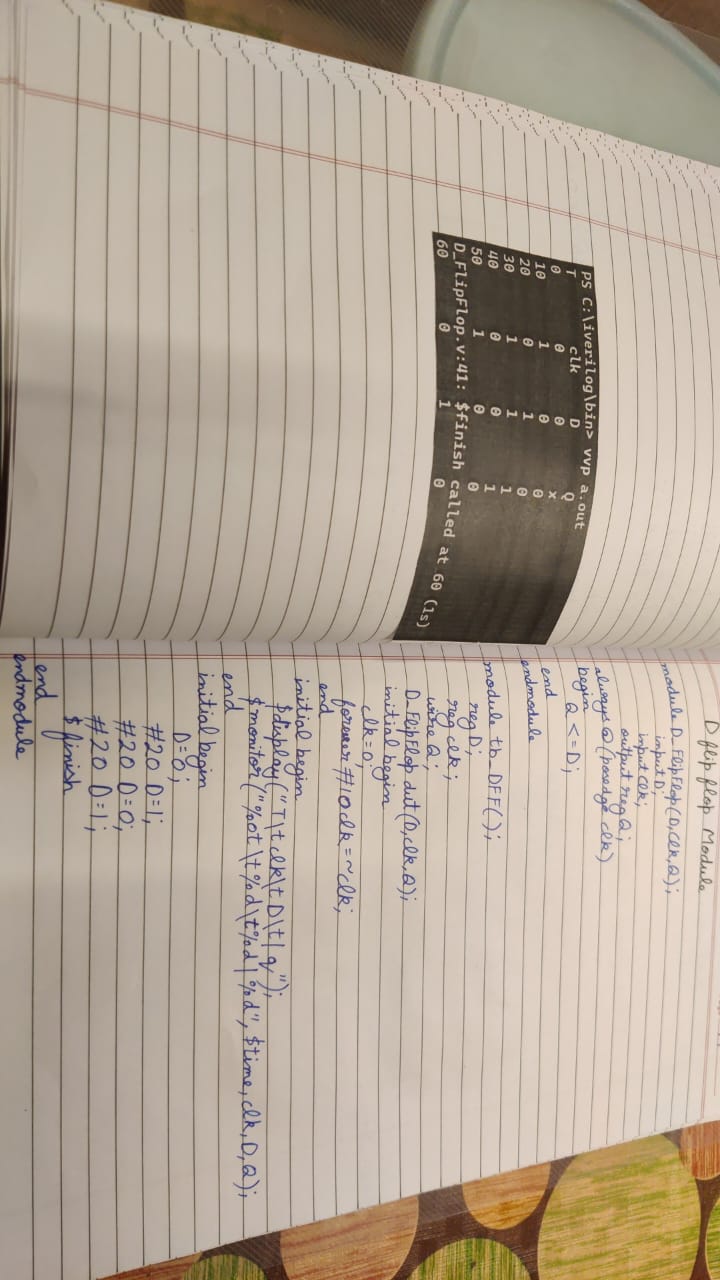 PS C:\iverilog\bin> vvp a.out
T clk D Q
0 0 0 x
10 1 0 0
20 0 1 0
30 1 1 1
40 0 0 1
50 1 0 0
D_FlipFlop.v:41: $finish called at 60 (1s)
60 0 1 0
D flip flop Module
module D_FlipFlop(D,clk,Q);
input D;
input clk;
output reg Q;
always @(posedge clk)
begin
Q <= D;
end
endmodule
module tb_DFF();
reg D;
reg clk;
wire Q;
D_FlipFlop dut(D,clk,Q);
initial begin
clk=0;
forever #10 clk=~clk;
end
initial begin
$display("T\t clk\t D\t| q");
$monitor("%0t \t %d\t%d | %d", $time, clk, D, Q);
end
initial begin
D=0;
#20 D=1;
#20 D=0;
#20 D=1;
$finish
end
endmodule